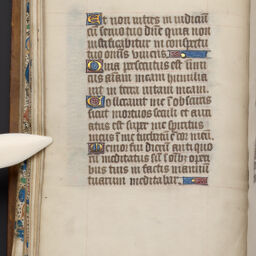 Et non intres in iudiciū
cū seruo tuo dñe quia non
iustificabitur in conspectu
tuo omīs viuens
Quia persecutus est inimi
cus aīam meam humilia
uit in terra vitam meam
Collocauit me ī obscuris
sicut mortuos seculi et anxi
atus est super me spiritus
meus ī me turbatū ē cor meū
Memor fui dierū antiquo
rū meditatus sū ī oīb; operi
bus tuis in factis manuū
tuarum meditabar